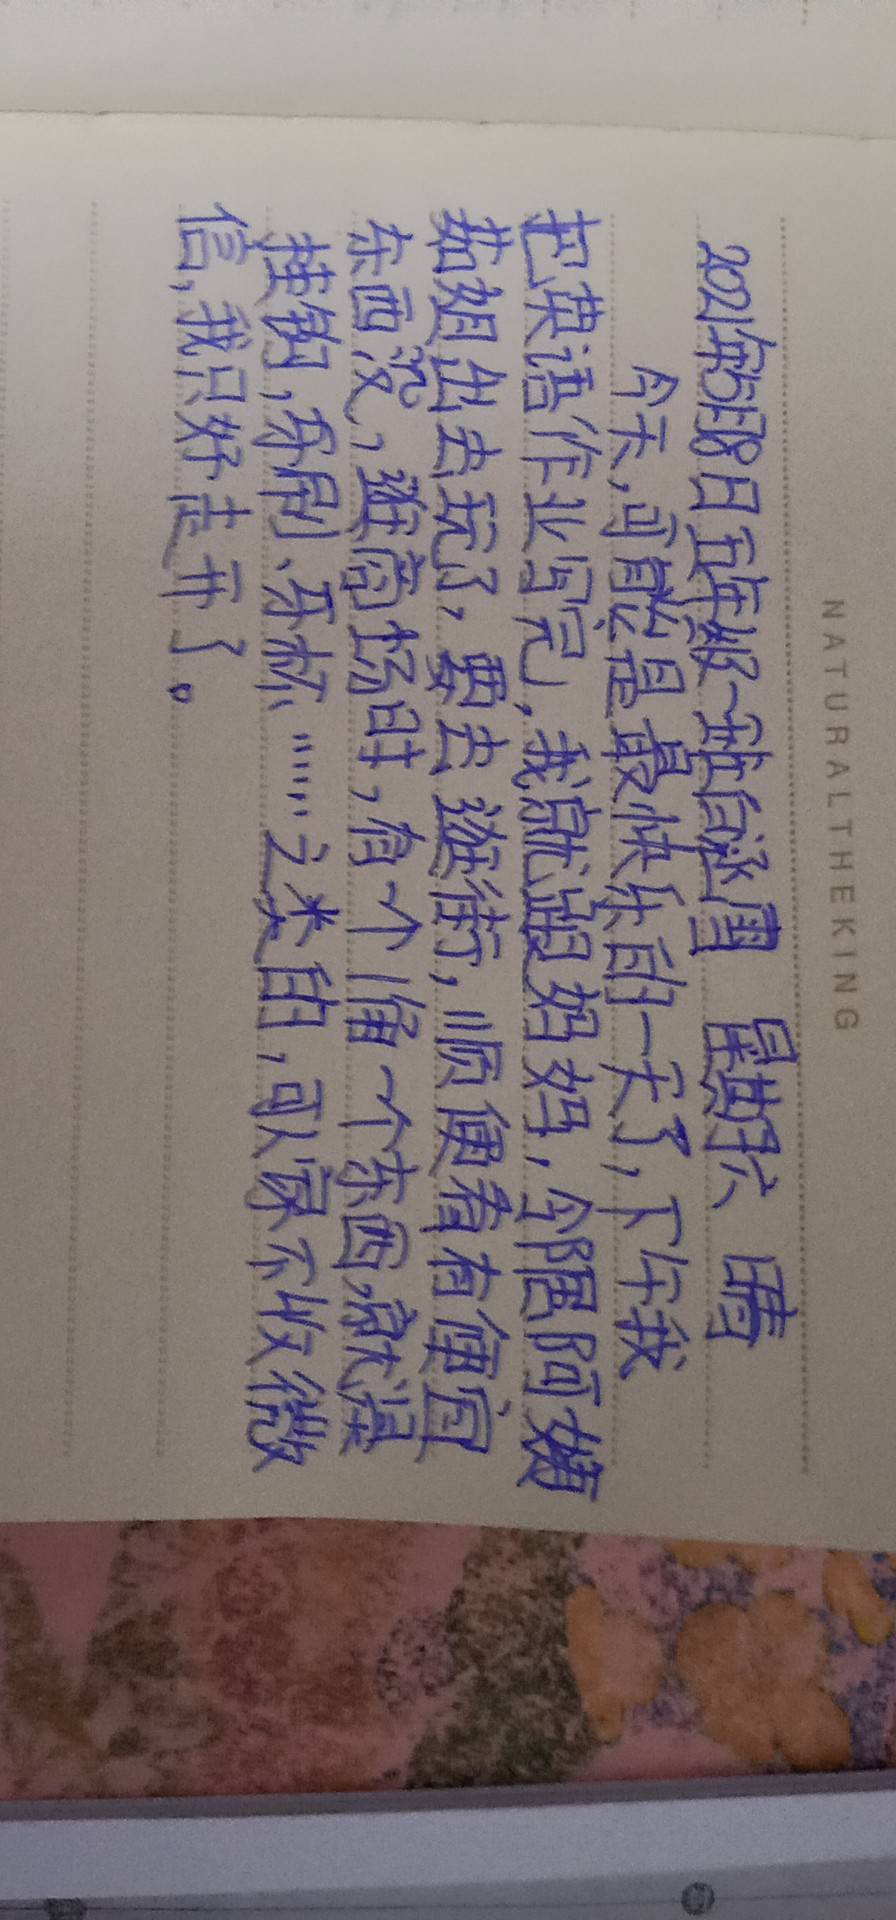 NATURALTHEKING
2021年5月8日五年级一班白 雪 星期六 晴
今天,可能是最快乐的一天了,下午我
把英语作业写完,我就跟妈妈,邻居阿姨
茹姐出去玩了,要去逛街,顺便看有便宜
东西没,逛商场时,有个 一个东西,就没
挂钩,牙刷、牙杯……之类的,可人家不收微
信,我只好走开了。